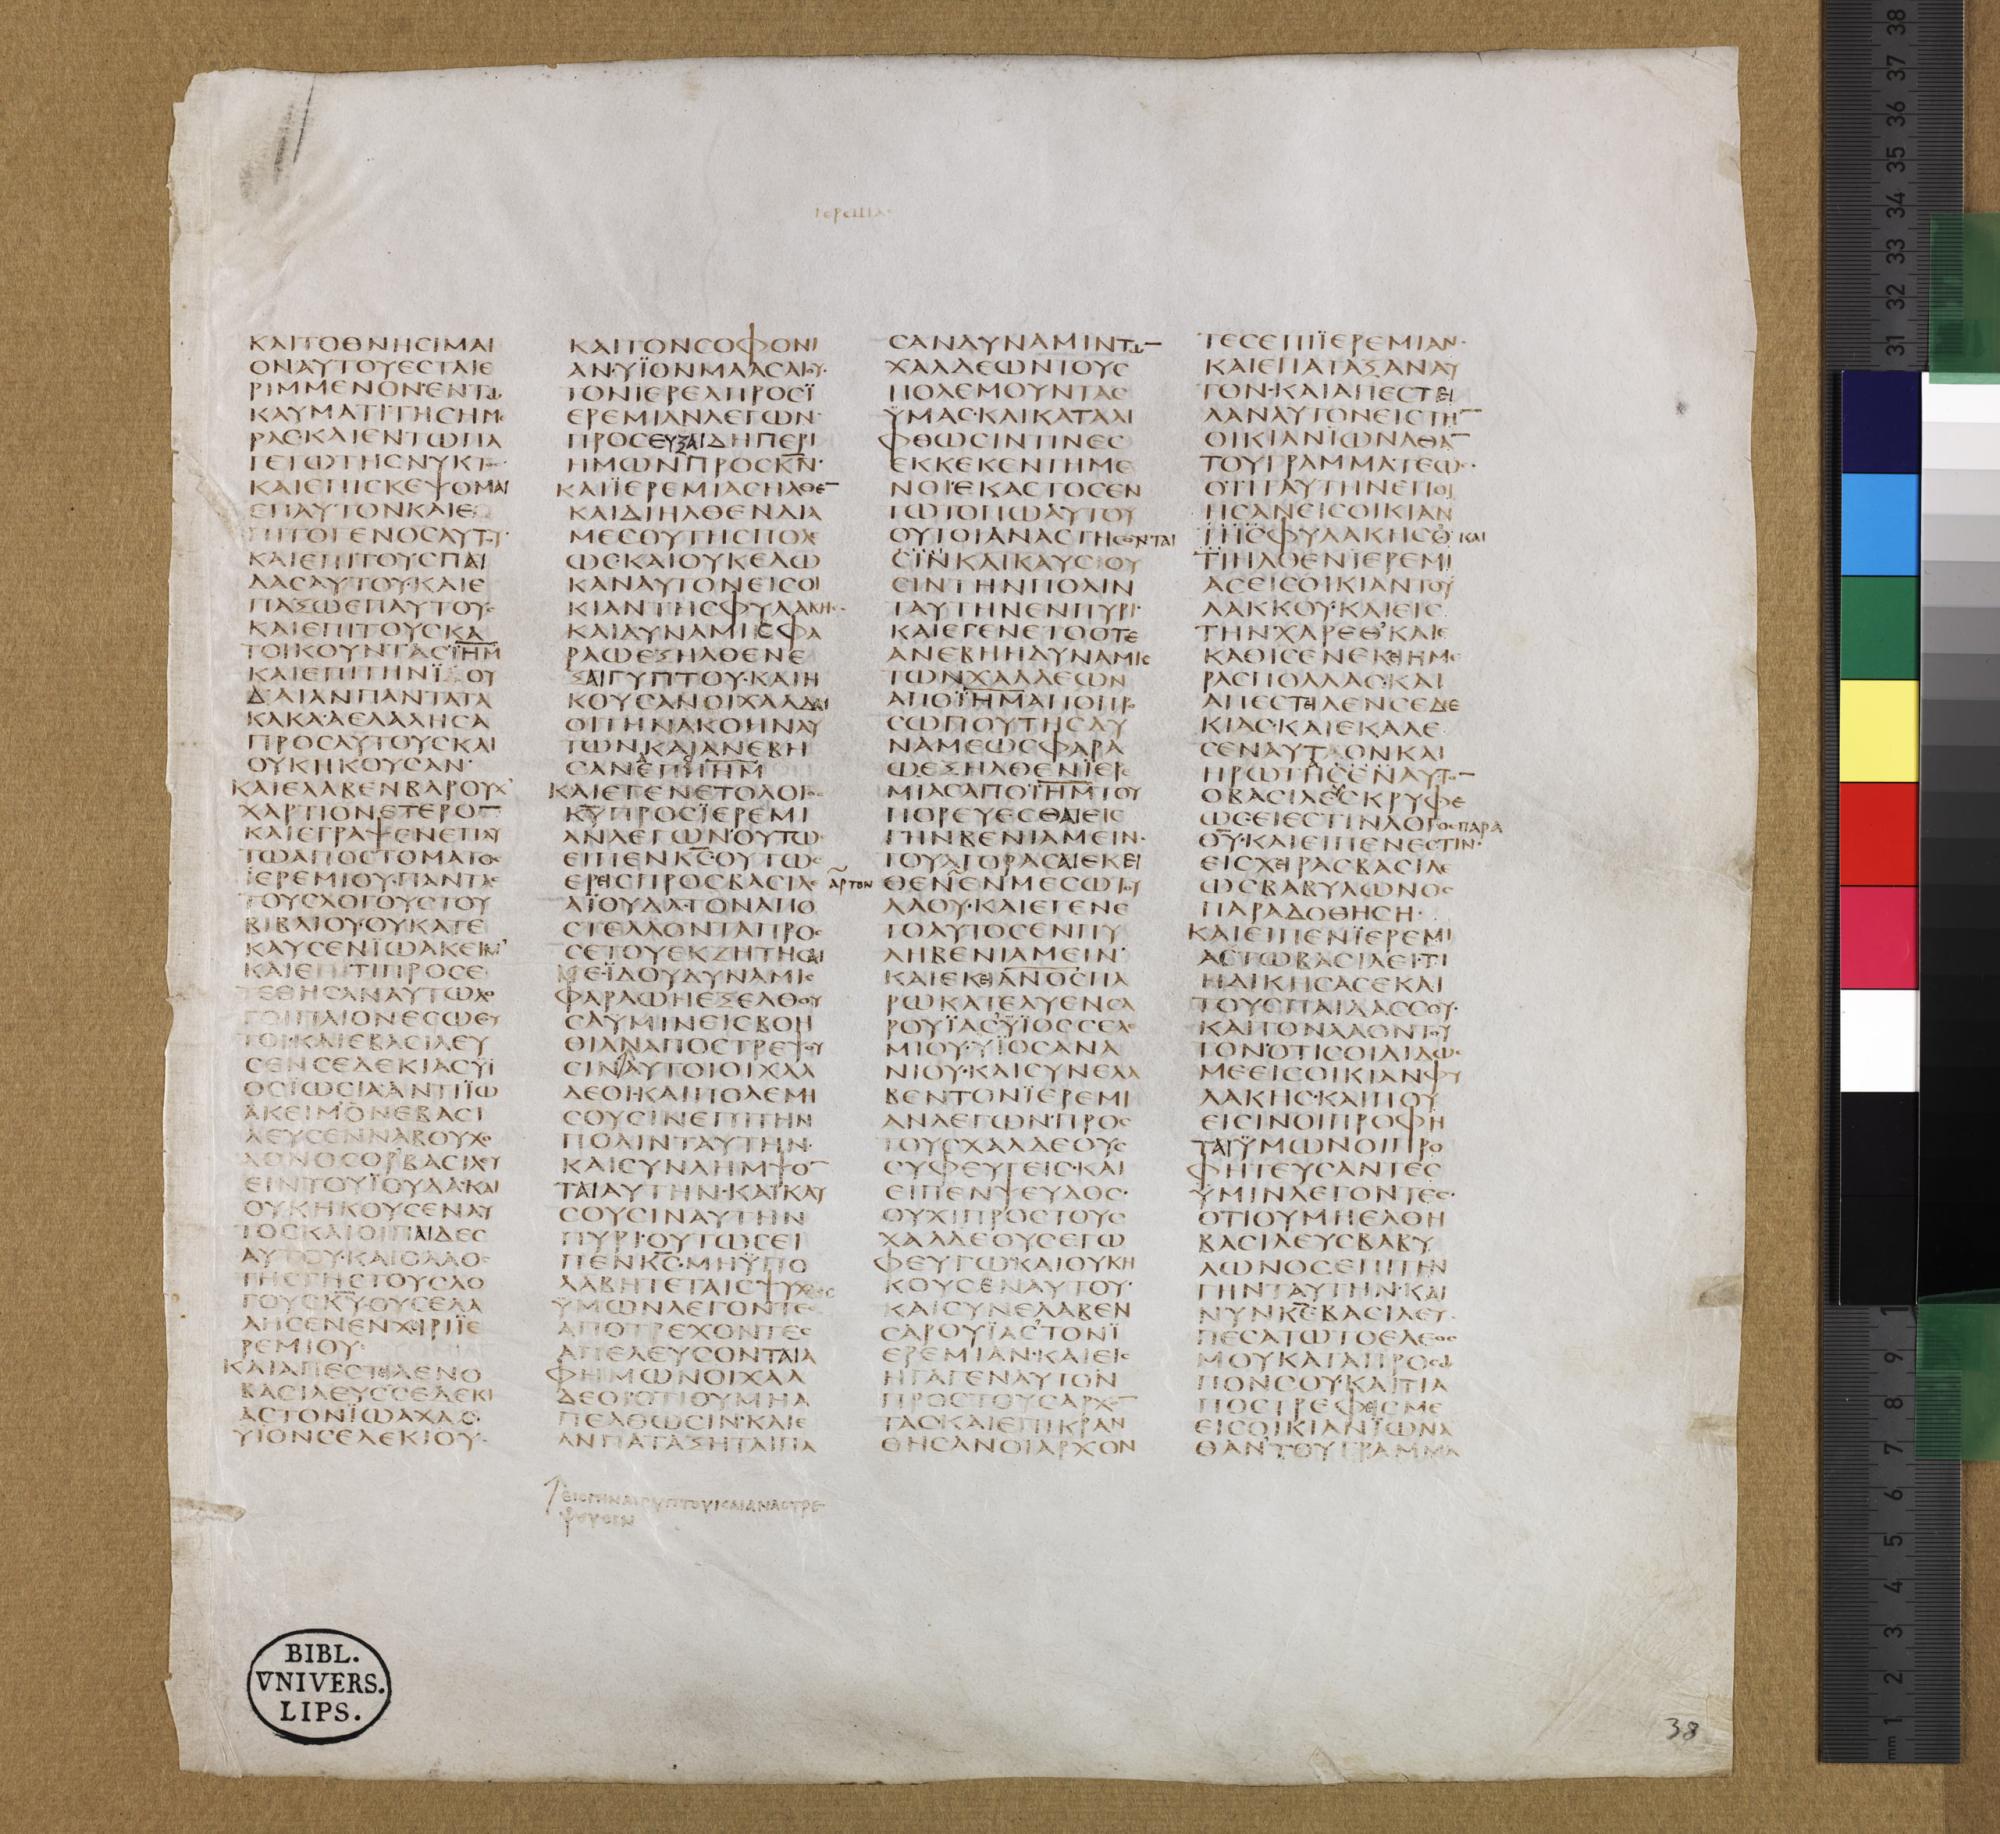 ΙΕΡΕΜΙΑϹ
ΚΑΙΤΟΘΝΗϹΙΜΑΙ
ΟΝΑΥΤΟΥΕϹΤΑΙΕ
ΡΙΜΜΕΝΟΝΕΝΤΩ
ΚΑΥΜΑΤΙΤΗϹΗΜΕ
ΡΑϹ·ΚΑΙΕΝΤΩΠΑ
ΓΕΤΩΤΗϹΝΥΚΤΟϹ·
ΚΑΙΕΠΙϹΚΕΨΟΜΑΙ
ΕΠΑΥΤΟΝΚΑΙΕ
ΠΙΤΟΓΕΝΟϹΑΥΤΟΥ·
ΚΑΙΕΠΙΤΟΥϹΠΑΙ
ΔΑϹΑΥΤΟΥ·ΚΑΙΕ
ΠΑΞΩΕΠΑΥΤΟΥϹ
ΚΑΙΕΠΙΤΟΥϹΚΑ
ΤΟΙΚΟΥΝΤΑϹΪΗΜ
ΚΑΙΕΠΙΤΗΝΪΟΥ
ΔΑΙΑΝΠΑΝΤΑΤΑ
ΚΑΚΑ·ΑΕΛΑΛΗϹΑ
ΠΡΟϹΑΥΤΟΥϹΚΑΙ
ΟΥΚΗΚΟΥϹΑΝ·
ΚΑΙΕΛΑΒΕΝΒΑΡΟΥΧ
ΧΑΡΤΙΟΝΕΤΕΡΟΝ
ΚΑΙΕΓΡΑΨΕΝΕΠΑΥ
ΤΩΑΠΟϹΤΟΜΑΤΟϹ
ΪΕΡΕΜΙΟΥ·ΠΑΝΤΑϹ
ΤΟΥϹΛΟΓΟΥϹΤΟΥ
ΒΙΒΛΙΟΥ·ΟΥΚΑΤΕ
ΚΑΥϹΕΝΪΩΑΚΕΙΜ·
ΚΑΙΕΠΙΤΙΠΡΟϹΕ
ΤΕΘΗϹΑΝΑΥΤΩΛΟ
ΓΟΙΠΛΙΟΝΕϹΩϹΟΥ
ΤΟΙ·ΚΑΙΕΒΑϹΙΛΕΥ
ϹΕΝϹΕΔΕΚΙΑϹΥΪ
ΟϹΪΩϹΙΑ·ΑΝΤΙΪΩ
ΑΚΕΙΜ·ΟΝΕΒΑϹΙ
ΛΕΥϹΕΝΝΑΒΟΥΧΟ
ΔΟΝΟϹΟΡ·ΒΑϹΙΛΕΥ
ΕΙΝΤΟΥΪΟΥΔΑ·ΚΑΙ
ΟΥΚΗΚΟΥϹΕΝΑΥ
ΤΟϹΚΑΙΟΙΠΑΙΔΕϹ
ΑΥΤΟΥ·ΚΑΙΟΛΑΟϹ
ΤΗϹΓΗϹΤΟΥϹΛΟ
ΓΟΥϹΚΥ·ΟΥϹΕΛΑ
ΛΗϹΕΝΕΝΧΙΡΙΪΕ
ΡΕΜΙΟΥ·
ΚΑΙΑΠΕϹΤΙΛΕΝΟ
ΒΑϹΙΛΕΥϹϹΕΔΕΚΙ
ΑϹΤΟΝΪΩΑΧΑΣ·
ΥΙΟΝϹΕΛΕΚΙΟΥ·
ΚΑΙΤΟΝϹΟΦΟΝΙ
ΑΝ·ΥΪΟΝΜΑΑϹΑΙΟΥ·
ΤΟΝΙΕΡΕΑΠΡΟϹΪ
ΕΡΕΜΙΑΝΛΕΓΩΝ·
ΠΡΟϹΕΥΞΑΙΔΗΠΕΡΙ
ΗΜΩΝΠΡΟϹΚΝ·
ΚΑΙΪΕΡΕΜΙΑϹΗΛΘΕ
ΚΑΙΔΙΗΛΘΕΝΔΙΑ
ΜΕϹΟΥΤΗϹΠΟΛΕ
ΩϹ·ΚΑΙΟΥΚΕΔΩ
ΚΑΝΑΥΤΟΝΕΙϹΟΙ
ΚΙΑΝΤΗϹΦΥΛΑΚΗϹ·
ΚΑΙΔΥΝΑΜΙϹΦΑ
ΡΑΩΕΞΗΛΘΕΝΕ
ΞΑΙΓΥΠΤΟΥ·ΚΑΙΗ
ΚΟΥϹΑΝΟΙΧΑΛΔΑΙ
ΟΙΤΗΝΑΚΟΗΝΑΥ
ΤΩΝ,ΚΑΙΑΝΕΒΗ
ϹΑΝΕΠΙΪΗΜ
ΚΑΙΕΓΕΝΕΤΟΛΟΓΟϹ
ΚΥΠΡΟϹΪΕΡΕΜΙ
ΑΝΛΕΓΩΝΟΥΤΩϹ
ΕΙΠΕΝΚϹΟΥΤΩϹ
ΕΡΕΙϹΠΡΟϹΒΑϹΙΛΕΑ
ΑΪΟΥΔΑ·ΤΟΝΑΠΟ
ϹΤΕΛΛΟΝΤΑΠΡΟϹ
ϹΕΤΟΥΕΚΖΗΤΗϹΑΙ
ΜΕΪΔΟΥΔΥΝΑΜΙϹ
ΦΑΡΑΩΗΕΞΕΛΘΟΥ
ϹΑΥΜΙΝΕΙϹΒΟΗ
ΘΙΑΝΑΠΟϹΤΡΕΨΟΥ
ϹΙΝΑΥΤΟΙΟΙΧΑΛ
ΔΕΟΙ·ΚΑΙΠΟΛΕΜΙ
ϹΟΥϹΙΝΕΠΙΤΗΝ
ΠΟΛΙΝΤΑΥΤΗΝ·
ΚΑΙϹΥΝΛΗΜΨΟΝ
ΤΑΙΑΥΤΗΝ·ΚΑΙΚΑΥ
ϹΟΥϹΙΝΑΥΤΗΝ
ΠΥΡΙ·ΟΥΤΩϹΕΙ
ΠΕΝΚϹ·ΜΗΫΠΟ
ΛΑΒΗΤΕΤΑΙϹΨΥΧΑΙϹ
ΫΜΩΝΛΕΓΟΝΤΕϹ
ΑΠΟΤΡΕΧΟΝΤΕϹ
ΑΠΕΛΕΥϹΟΝΤΑΙΑ
ΦΗΜΩΝΟΙΧΑΛ
ΔΕΟΙ·ΟΤΙΟΥΜΗΑ
ΠΕΛΘΩϹΙΝ·ΚΑΙΕ
ΑΝΠΑΤΑΞΗΤΑΙΠΑ
ΕΙϹΓΗΝΑΙΓΥΠΤΟΥΚΑΙΑΝΑϹΤΡΕ
ΨΟΥϹΙΝ
ϹΑΝΔΥΝΑΜΙΝΤΩΝ
ΧΑΛΔΕΩΝΤΟΥϹ
ΠΟΛΕΜΟΥΝΤΑϹ
ΫΜΑϹ·ΚΑΙΚΑΤΑΛΙ
ΦΘΩϹΙΝΤΙΝΕϹ
ΕΚΚΕΚΕΝΤΗΜΕ
ΝΟΙ·ΕΚΑϹΤΟϹΕΝ
ΤΩΤΟΠΩΑΥΤΟΥ
ΟΥΤΟΙΑΝΑϹΤΗϹΟΝΤΑΙ
ϹΪΝΚΑΙΚΑΥϹΟΥ
ϹΙΝΤΗΝΠΟΛΙΝ
ΤΑΥΤΗΝΕΝΠΥΡΙ·
ΚΑΙΕΓΕΝΕΤΟΟΤΕ
ΑΝΕΒΗΗΔΥΝΑΜΙϹ
ΤΩΝΧΑΛΔΕΩΝ
ΑΠΟΪΗΜΑΠΟΠΡΟ
ϹΩΠΟΥΤΗϹΔΥ
ΝΑΜΕΩϹΦΑΡΑ
ΩΕΞΗΛΘΕΝΪΕΡΕ
ΜΙΑϹΑΠΟΪΗΜΤΟΥ
ΠΟΡΕΥΕϹΘΑΙΕΙϹ
ΓΗΝΒΕΝΙΑΜΕΙΝ·
ΤΟΥΑΓΟΡΑϹΑΙΕΚΕΙ
ΑΡΤΟΝ
ΘΕΝΕΝΜΕϹΩΤΟΥ
ΛΑΟΥ·ΚΑΙΕΓΕΝΕ
ΤΟΑΥΤΟϹΕΝΠΥ
ΛΗΒΕΝΙΑΜΕΙΝ·
ΚΑΙΕΚΕΙΑΝΟϹΠΑ
ΡΩΚΑΤΕΛΥΕΝϹΑ
ΡΟΥΪΑϹΫΪΟϹϹΕΛΕ
ΜΙΟΥ·ΥΪΟϹΑΝΑ
ΝΙΟΥ·ΚΑΙϹΥΝΕΛΑ
ΒΕΝΤΟΝΪΕΡΕΜΙ
ΑΝΛΕΓΩΝ·ΠΡΟϹ
ΤΟΥϹΧΑΛΔΕΟΥϹ
ϹΥΦΕΥΓΕΙϹ·ΚΑΙ
ΕΙΠΕΝΨΕΥΔΟϹ·
ΟΥΧΙΠΡΟϹΤΟΥϹ
ΧΑΛΔΕΟΥϹΕΓΩ
ΦΕΥΓΩ·ΚΑΙΟΥΚΗ
ΚΟΥϹΕΝΑΥΤΟΥ·
ΚΑΙϹΥΝΕΛΑΒΕΝ
ϹΑΡΟΥΪΑϹΤΟΝΪ
ΕΡΕΜΙΑΝ·ΚΑΙΕΙϹ
ΗΓΑΓΕΝΑΥΤΟΝ
ΠΡΟϹΤΟΥϹΑΡΧΟΝ
ΤΑϹΚΑΙΕΠΙΚΡΑΝ
ΘΗϹΑΝΟΙΑΡΧΟΝ
ΤΕϹΕΠΙΪΕΡΕΜΙΑΝ·
ΚΑΙΕΠΑΤΑΞΑΝΑΥ
ΤΟΝ·ΚΑΙΑΠΕϹΤΕΙ
ΛΑΝΑΥΤΟΝΕΙϹΤΗΝ
ΟΙΚΙΑΝΪΩΝΑΘΑΝ
ΤΟΥΓΡΑΜΜΑΤΕΩϹ·
ΟΤΙΤΑΥΤΗΝΕΠΟΙ
ΗϹΑΝΕΙϹΟΙΚΙΑΝ
ΤΗϹΦΥΛΑΚΗϹΟ ΚΑΙ
ΤΙΗΛΘΕΝΪΕΡΕΜΙ
ΑϹΕΙϹΟΙΚΙΑΝΤΟΥ
ΛΑΚΚΟΥ·ΚΑΙΕΙϹ
ΤΗΝΧΑΡΕΘ·ΚΑΙΕ
ΚΑΘΙϹΕΝΕΚΕΙΗΜΕ
ΡΑϹΠΟΛΛΑϹ·ΚΑΙ
ΑΠΕϹΤΙΛΕΝϹΕΔΕ
ΚΙΑϹ·ΚΑΙΕΚΑΛΕ
ϹΕΝΑΥΤΟΝΚΑΙ
ΗΡΩΤΗϹΕΝΑΥΤΟΝ
ΟΒΑϹΙΛΕΥϹΚΡΥΦΕ
ΩϹ·ΕΙΕϹΤΙΝΛΟΓΟϹΠΑΡΑ
ΚΥ·ΚΑΙΕΙΠΕΝΕϹΤΙΝ·
ΕΙϹΧΕΙΡΑϹΒΑϹΙΛΕ
ΩϹΒΑΒΥΛΩΝΟϹ
ΠΑΡΑΔΟΘΗϹΗ·
ΚΑΙΕΙΠΕΝΪΕΡΕΜΙ
ΑϹΤΩΒΑϹΙΛΕΙ·ΤΙ
ΗΔΙΚΗϹΑϹΕΚΑΙ
ΤΟΥϹΠΑΙΔΑϹϹΟΥ·
ΚΑΙΤΟΝΛΑΟΝΤΟΥ
ΤΟΝ·ΟΤΙϹΟΙΔΙΔΩϹ
ΜΕΕΙϹΟΙΚΙΑΝΦΥ
ΛΑΚΗϹ·ΚΑΙΠΟΥ
ΕΙϹΙΝΟΙΠΡΟΦΗ
ΤΑΙΫΜΩΝΟΙΠΡΟ
ΦΗΤΕΥϹΑΝΤΕϹ
ΫΜΙΝΛΕΓΟΝΤΕϹ·
ΟΤΙΟΥΜΗΕΛΘΗ
ΒΑϹΙΛΕΥϹΒΑΒΥ
ΛΩΝΟϹ·ΕΠΙΤΗΝ
ΓΗΝΤΑΥΤΗΝ·ΚΑΙ
ΝΥΝΚΕ·ΒΑϹΙΛΕΥ·
ΠΕϹΑΤΩΤΟΕΛΕΟϹ
ΜΟΥΚΑΤΑΠΡΟϹΩ
ΠΟΝϹΟΥ·ΚΑΙΤΙΑ
ΠΟϹΤΡΕΦΕΙϹΜΕ
ΕΙϹΟΙΚΙΑΝΪΩΝΑ
ΘΑΝΤΟΥΓΡΑΜΜΑ
BIBL.
VNIVERS.
LIPS.
38